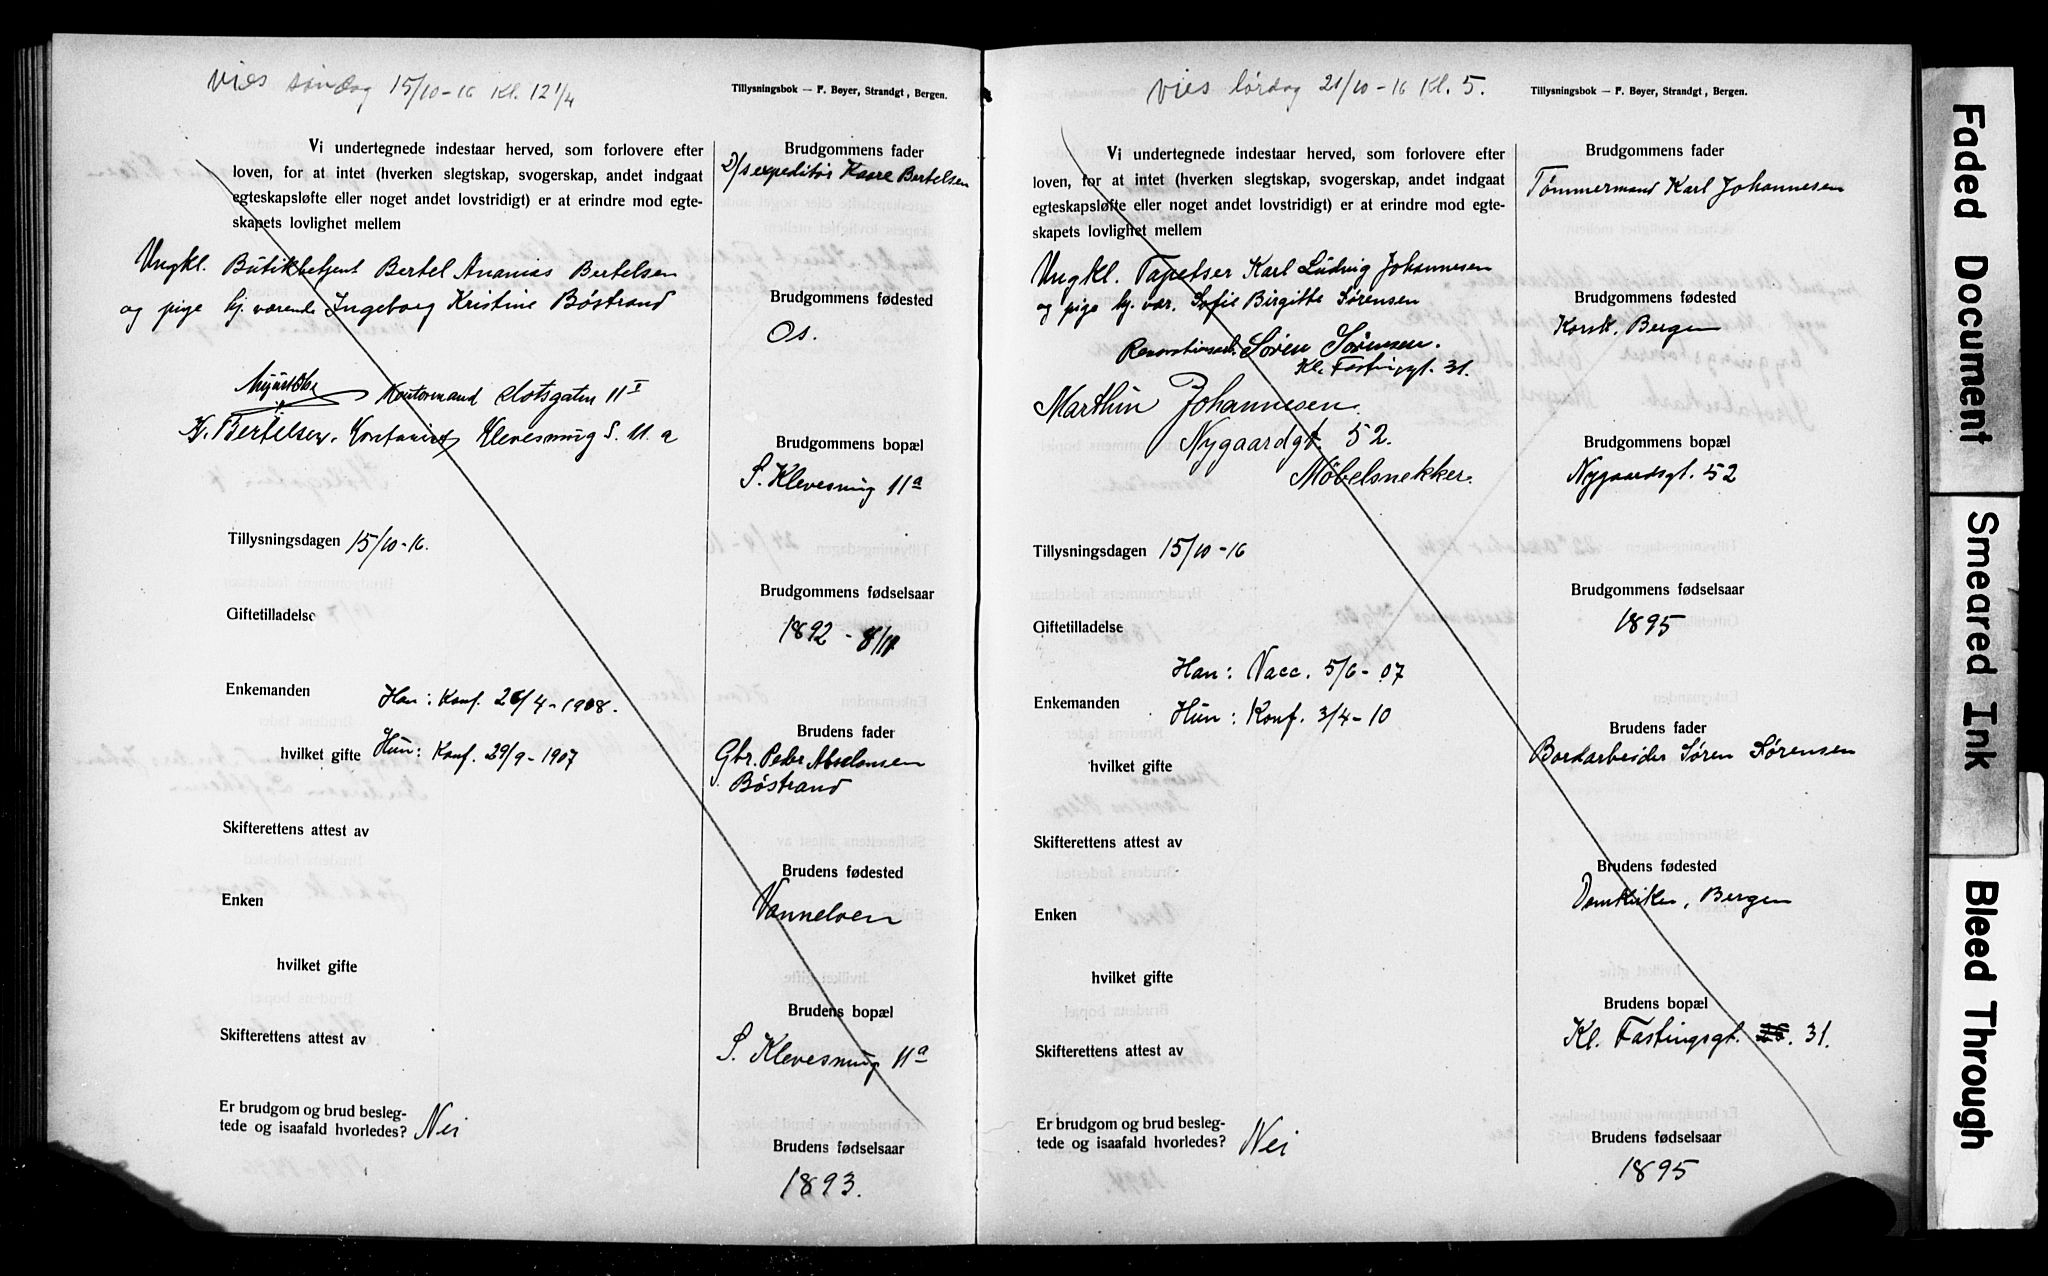 vies søndag 15/10-16 Kl. 12 1/4
Tillysningsbok — F. Beyer, Strandgt, Bergen.
Vi undertegnede indestaar herved, som forlovere efter
loven, for at intet (hverken slegtskap, svogerskap, andet indgaat
egteskapsløfte eller noget andet lovstridigt) er at erindre mod egte-
skapets lovlighet mellem
Ungkl. Butikbetjent Bertel Ananias Bertelsen
og pige hj. værende Ingeborg Kristine Böstrand
Kontormand Slotsgaten 11 I
K. Bertelsen, Klevesmug S. 11 a
Tillysningsdagen 15/10-16.
Giftetilladelse
Enkemanden
Han: Konf. 26/4-1908.
hvilket gifte
Hun: Konf. 29/9-1907
Skifterettens attest av
Enken
hvilket gifte
Skifterettens attest av
Er brudgom og brud besleg-
tede og isaafald hvorledes? Nei
Brudgommens fader
D/s expeditør Kaare Bertelsen
Brudgommens fødested
Os.
Brudgommens bopæl
S. Klevesmug 11a
Brudgommens fødselsaar
1892 - 8/11
Brudens fader
Gbr. Peder Absalonsen
Böstrand
Brudens fødested
Vannelven
Brudens bopæl
S. Klevesmug 11a
Brudens fødselsaar
1893.
vies lørdag 21/10-16 Kl. 5.
Tillysningsbok — F. Beyer, Strandgt, Bergen.
Vi undertegnede indestaar herved, som forlovere efter
loven, for at intet (hverken slegtskap, svogerskap, andet indgaat
egteskapsløfte eller noget andet lovstridigt) er at erindre mod egte-
skapets lovlighet mellem
Ungkl. Tapetser Karl Ludvig Johannesen
og pige hj. vær. Sofie Birgitte Sørensen
Renovationsarb. Søren Sørensen.
Kl. Fastingsgt. 31.
Marthin Johannesen.
Nygaardgt. 52.
Møbelsnekker.
Tillysningsdagen 15/10-16
Giftetilladelse
Han: Vacc. 5/6-07
Enkemanden
Hun: Konf. 3/4-10
hvilket gifte
Skifterettens attest av
Enken
hvilket gifte
Skifterettens attest av
Er brudgom og brud besleg-
tede og isaafald hvorledes? Nei
Brudgommens fader
Tømmermand Karl Johannesen
Brudgommens fødested
Korsk. Bergen
Brudgommens bopæl
Nygaardsgt. 52
Brudgommens fødselsaar
1895
Brudens fader
Bordarbeider Søren Sørensen
Brudens fødested
Domkirken, Bergen
Brudens bopæl
Kl. Fastingsgt. 31.
Brudens fødselsaar
1895
Faded Document
Smeared Ink
Bleed Through